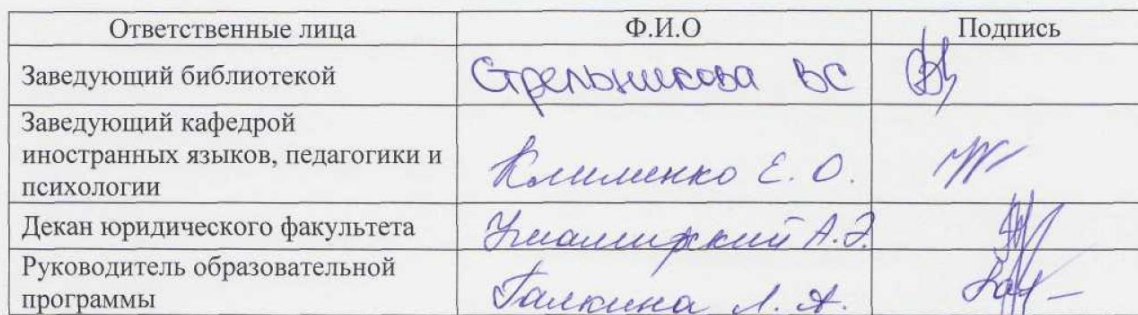 Ответственные лица Ф.И.О Подпись
Заведующий библиотекой Стрельникова ВС
Заведующий кафедрой
иностранных языков, педагогики и
психологии Клименко Е. О.
Декан юридического факультета А.Э.
Руководитель образовательной
программы Галкина Л. А.